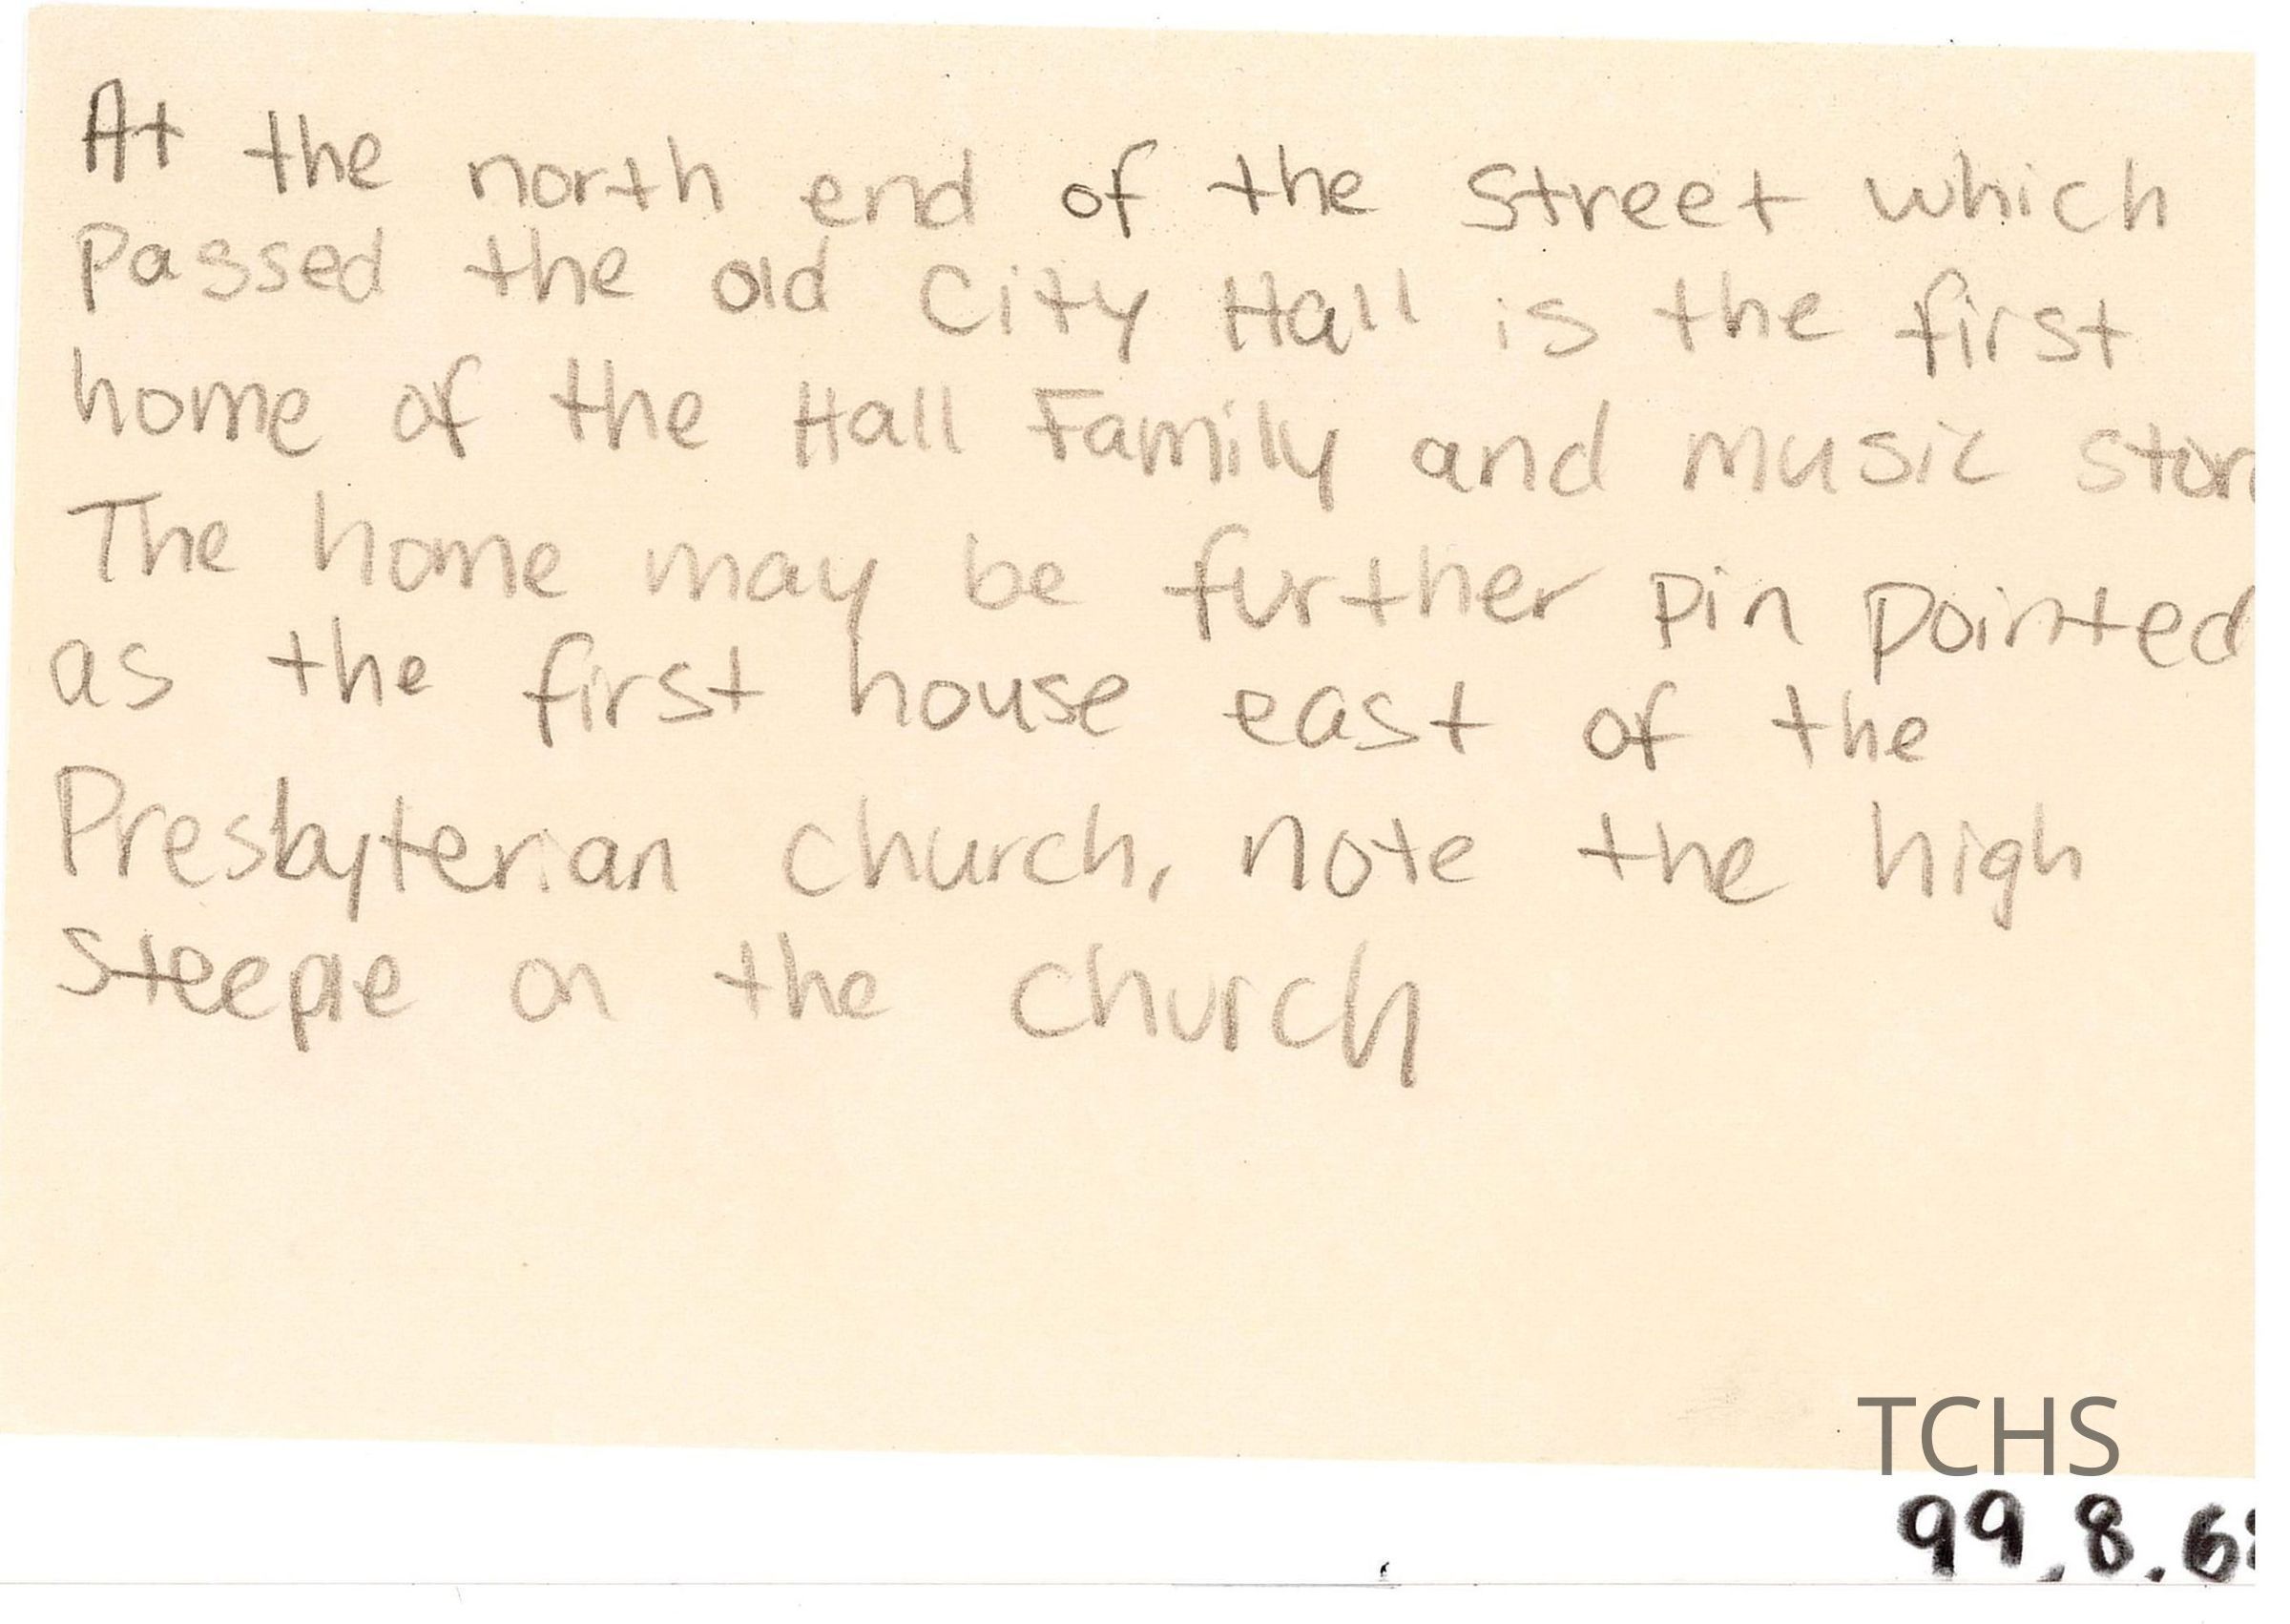 At the north end of the street which
passed the old City Hall is the first
home of the Hall Family and music stor
The home may be further pin pointed
as the first house east of the
Presbyterian church, note the high
steeple on the church
TCHS
99.8.6